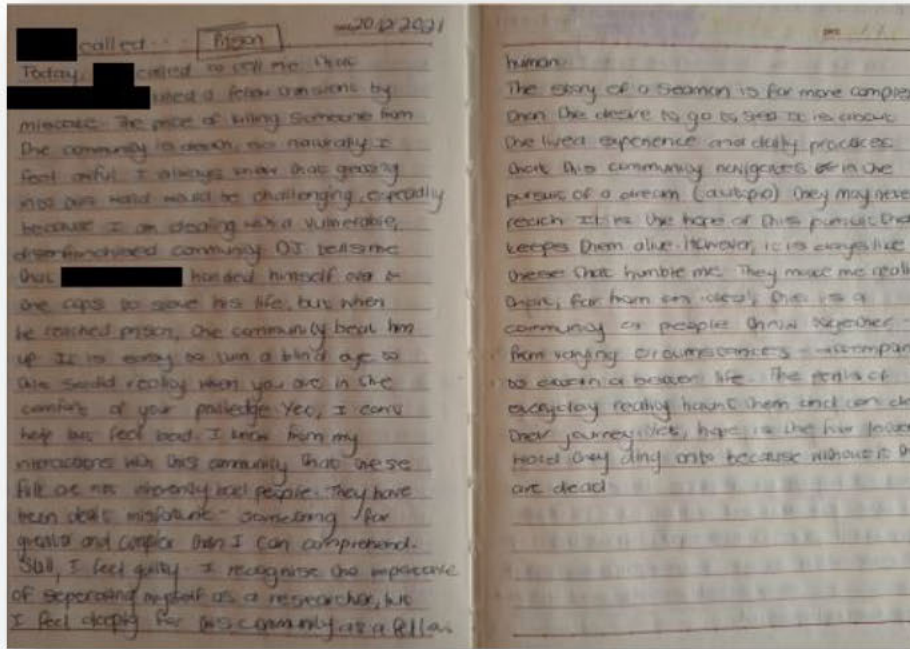 called... Prison 20 12 2021
Today, called to tell me that
killed a fellow by
mistake. The price of killing someone from
the community is death, so naturally I
feel awful. I always knew that getting
into this world would be challenging, especially
because I am dealing with a vulnerable,
disenfranchised community. OJ tells me
that handed himself over to
the cops to save his life, but when
he reached prison, the community beat him
up. It is easy to turn a blind eye to
this reality when you are in the
comfort of your Yet, I can't
help but feel bad. I know from my
interactions with this community that these
folk are not inherently bad people. They have
been dealt misfortune - something far
greater and complex than I can comprehend.
Still, I feel guilty. I recognise the importance
of seperating myself as a researcher, but
I feel deeply for this community as a fellow
human.
The story of a seaman is far more comple
than the desire to go to sea. It is about
the lived experience and daily processes
that this community navigates in the
pursuit of a dream (autopia) they may never
reach. It is the hope of this pursuit that
keepes them alive. However, it is days like
these that humble me. They make me reali
that, far from an ideal, this is a
community of people thrown together -
from varying circumstances -
to a better life. The perils of
everyday reality haunt them and can
their journey hope is the
they cling onto because without it th
are dead